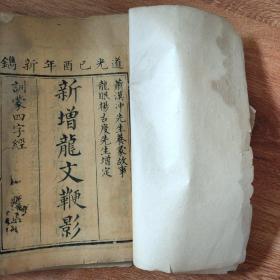 道光己酉年新鐫
蕭漢冲先生蒙故事
龍眼楊古度先生增定
新增龍文鞭影
訓蒙四字經